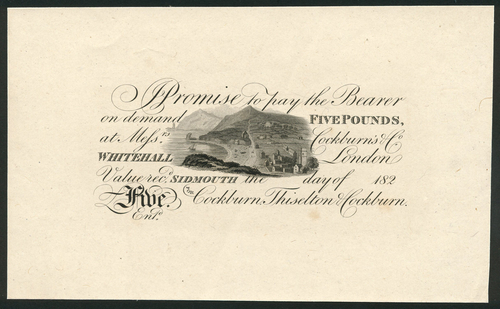 I Promise to pay the Bearer
on demand FIVE POUNDS,
at Messrs Cockburn's & Co
WHITEHALL London
Value recd. SIDMOUTH the day of 182
Five. For Cockburn, Thiselton & Cockburn.
Entd.